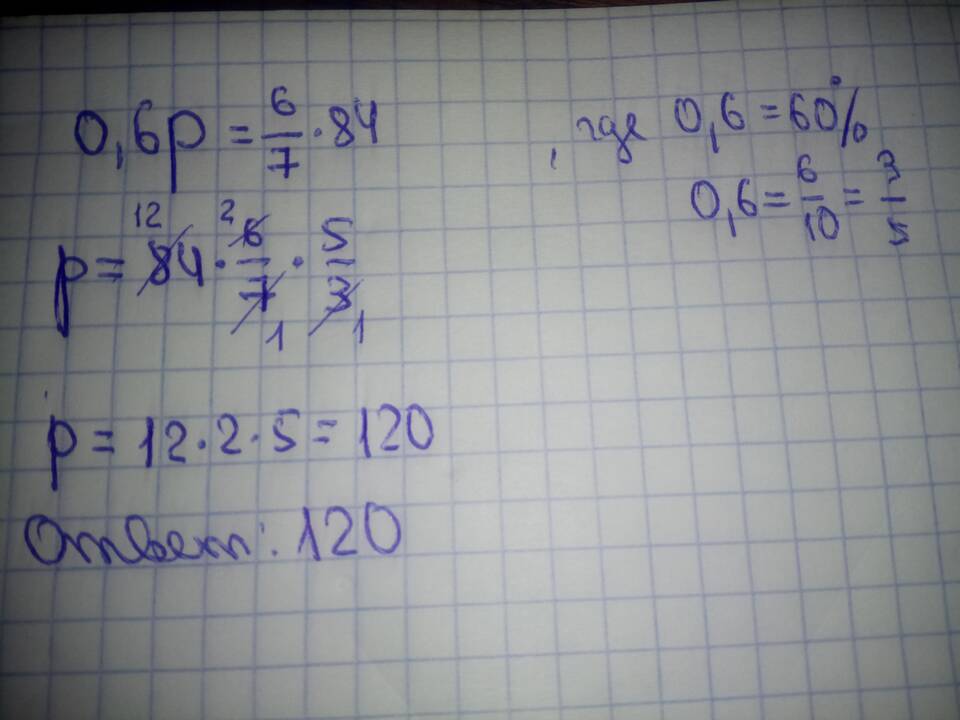 0,6p = 6/7 · 84 , где 0,6 = 60%
0,6 = 6/10 = 3/5
p = 84 12 · 6 2 / 7 1 · 5 / 3 1
p = 12 · 2 · 5 = 120
Ответ: 120